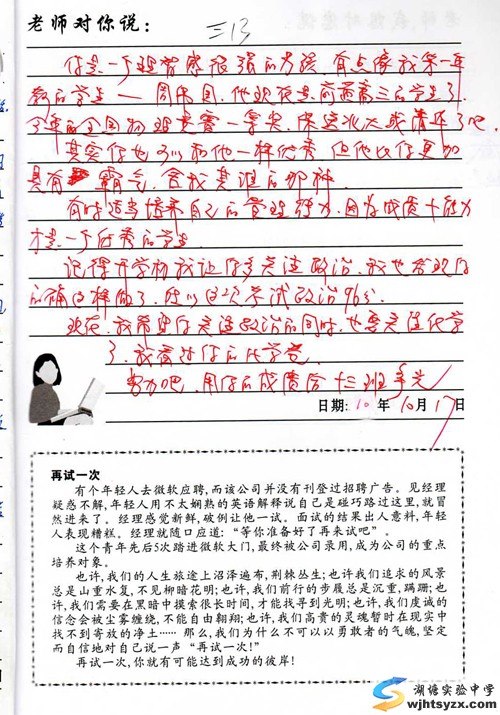 老师对你说：
三13
你是一个理智感很强的女孩，有点像我第一年
教的学生——周伟国，他现在是前黄高三的学生了，
今年的全国物理竞赛一等奖，保送北大或清华了吧。
其实你也可以和他一样优秀，但他比你更加
具有霸气，舍我其谁的那种
有时适当培养自己的管理能力，因为成绩十能力
才是一个优秀的学生
记得开学初我让你多关注政治，我也发现你
的确这样做了，所以这次考试政治96分
现在，我希望你关注政治的同时，也要关注化学
了，我看过你的化学卷
努力吧，用你的成绩给十三班争光
日期：10年10月17日
再试一次
有个年轻人去微软应聘,而该公司并没有刊登过招聘广告。见经理
疑惑不解,年轻人用不太娴熟的英语解释说自己是碰巧路过这里,就冒
然进来了。经理感觉新鲜,破例让他一试。面试的结果出人意料,年轻
人表现糟糕。经理就随口应道:“等你准备好了再来试吧”。
这个青年先后5次踏进微软大门,最终被公司录用,成为公司的重点
培养对象。
也许,我们的人生旅途上沼泽遍布,荆棘丛生;也许我们追求的风景
总是山重水复,不见柳暗花明;也许,我们前行的步履总是沉重,蹒跚;也
许,我们需要在黑暗中摸索很长时间,才能找寻到光明;也许,我们虔诚的
信念会被尘雾缠绕,不能自由翱翔;也许,我们高贵的灵魂暂时在现实中
找不到寄放的净土······那么,我们为什么不可以以勇敢者的气魄,坚定
而自信地对自己说一声“再试一次!”
再试一次,你就有可能达到成功的彼岸!
湖塘实验中学
wjhtsyzx.com